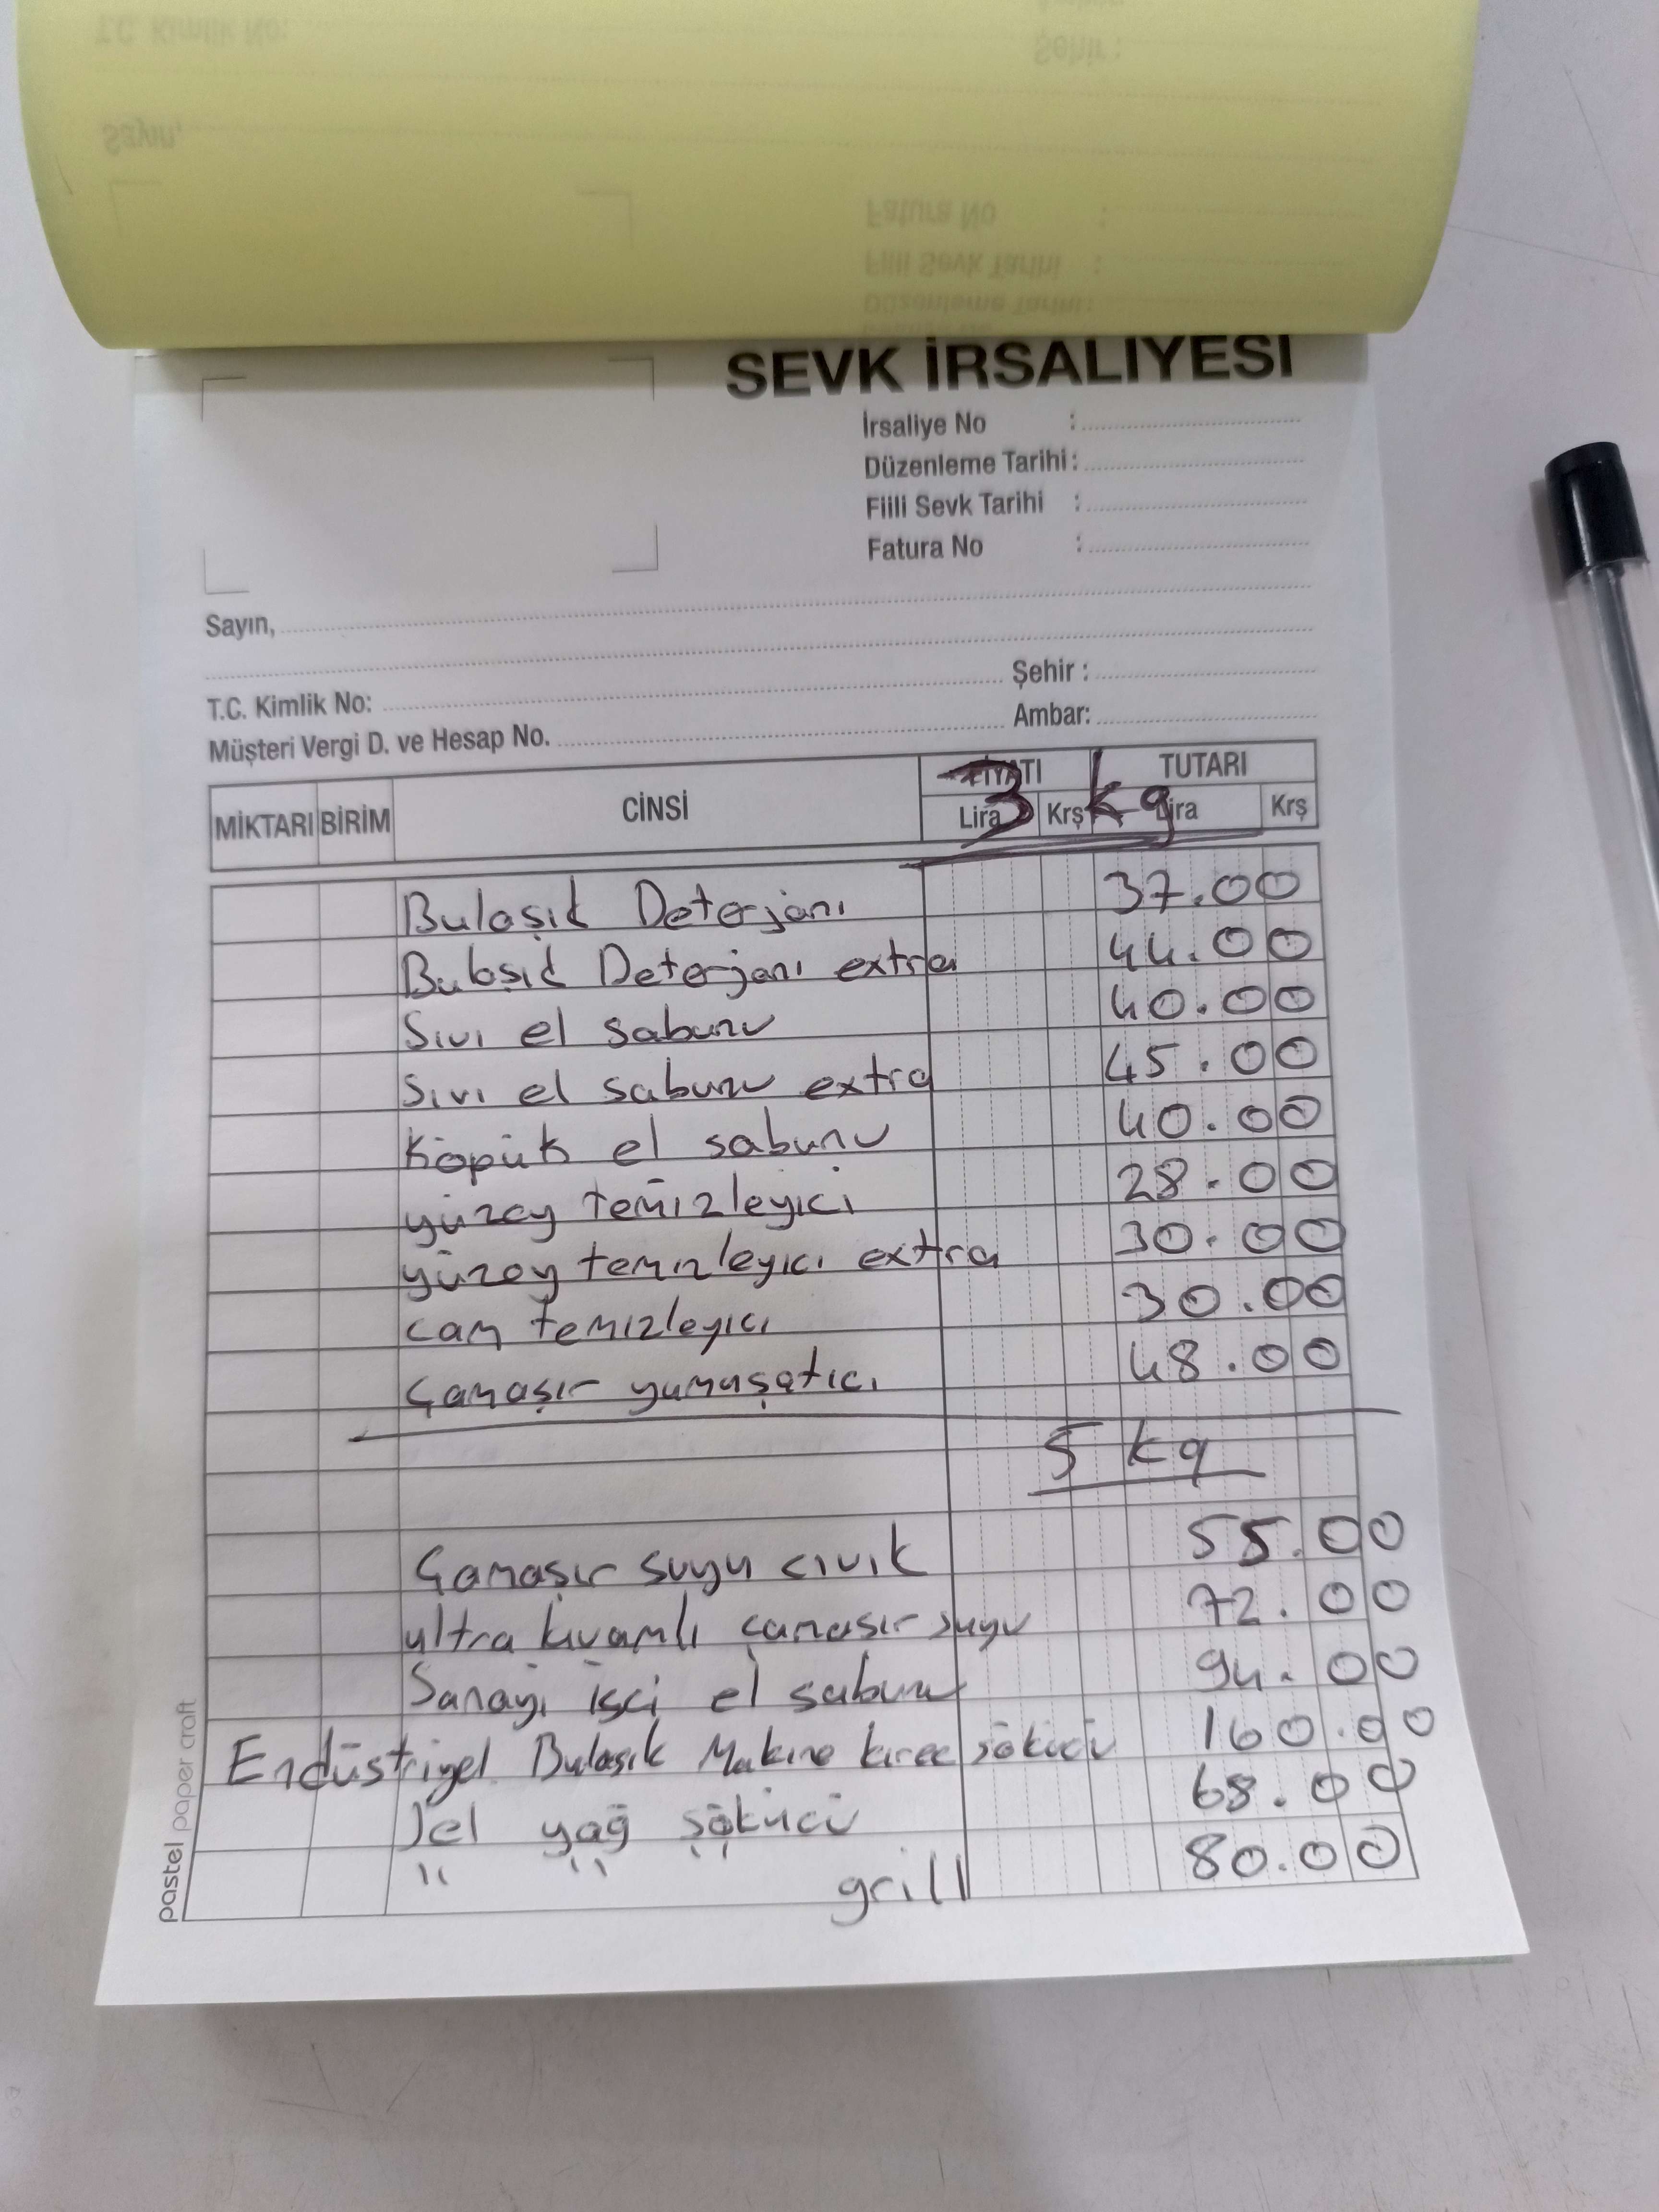 T.C. Kimlik No:
Şehir :
Sayın,
Fatura No :
Fiili Sevk Tarihi :
Düzenleme Tarihi :
SEVK İRSALİYESİ
İrsaliye No :
Düzenleme Tarihi :
Fiili Sevk Tarihi :
Fatura No :
Sayın,
T.C. Kimlik No: Şehir :
Müşteri Vergi D. ve Hesap No. Ambar:
MİKTARI BİRİM CİNSİ FİYATI TUTARI
Lira Krş Lira Krş
3 kg
Bulaşık Deterjanı 37.00
Bulaşık Deterjanı extra 44.00
Sıvı el sabunu 40.00
Sıvı el sabunu extra 45.00
Köpük el sabunu 40.00
yüzey temizleyici 28.00
yüzey temizleyici extra 30.00
cam temizleyici 30.00
Çamaşır yumuşatıcı 48.00
5 kg
Çamaşır suyu cıvık 55.00
ultra kıvamlı çamaşır suyu 72.00
Sanayi işçi el sabunu 94.00
Endüstriyel Bulaşık Makine kireç sökücü 160.00
Jel yağ sökücü 68.00
" " " grill 80.00
pastel paper craft